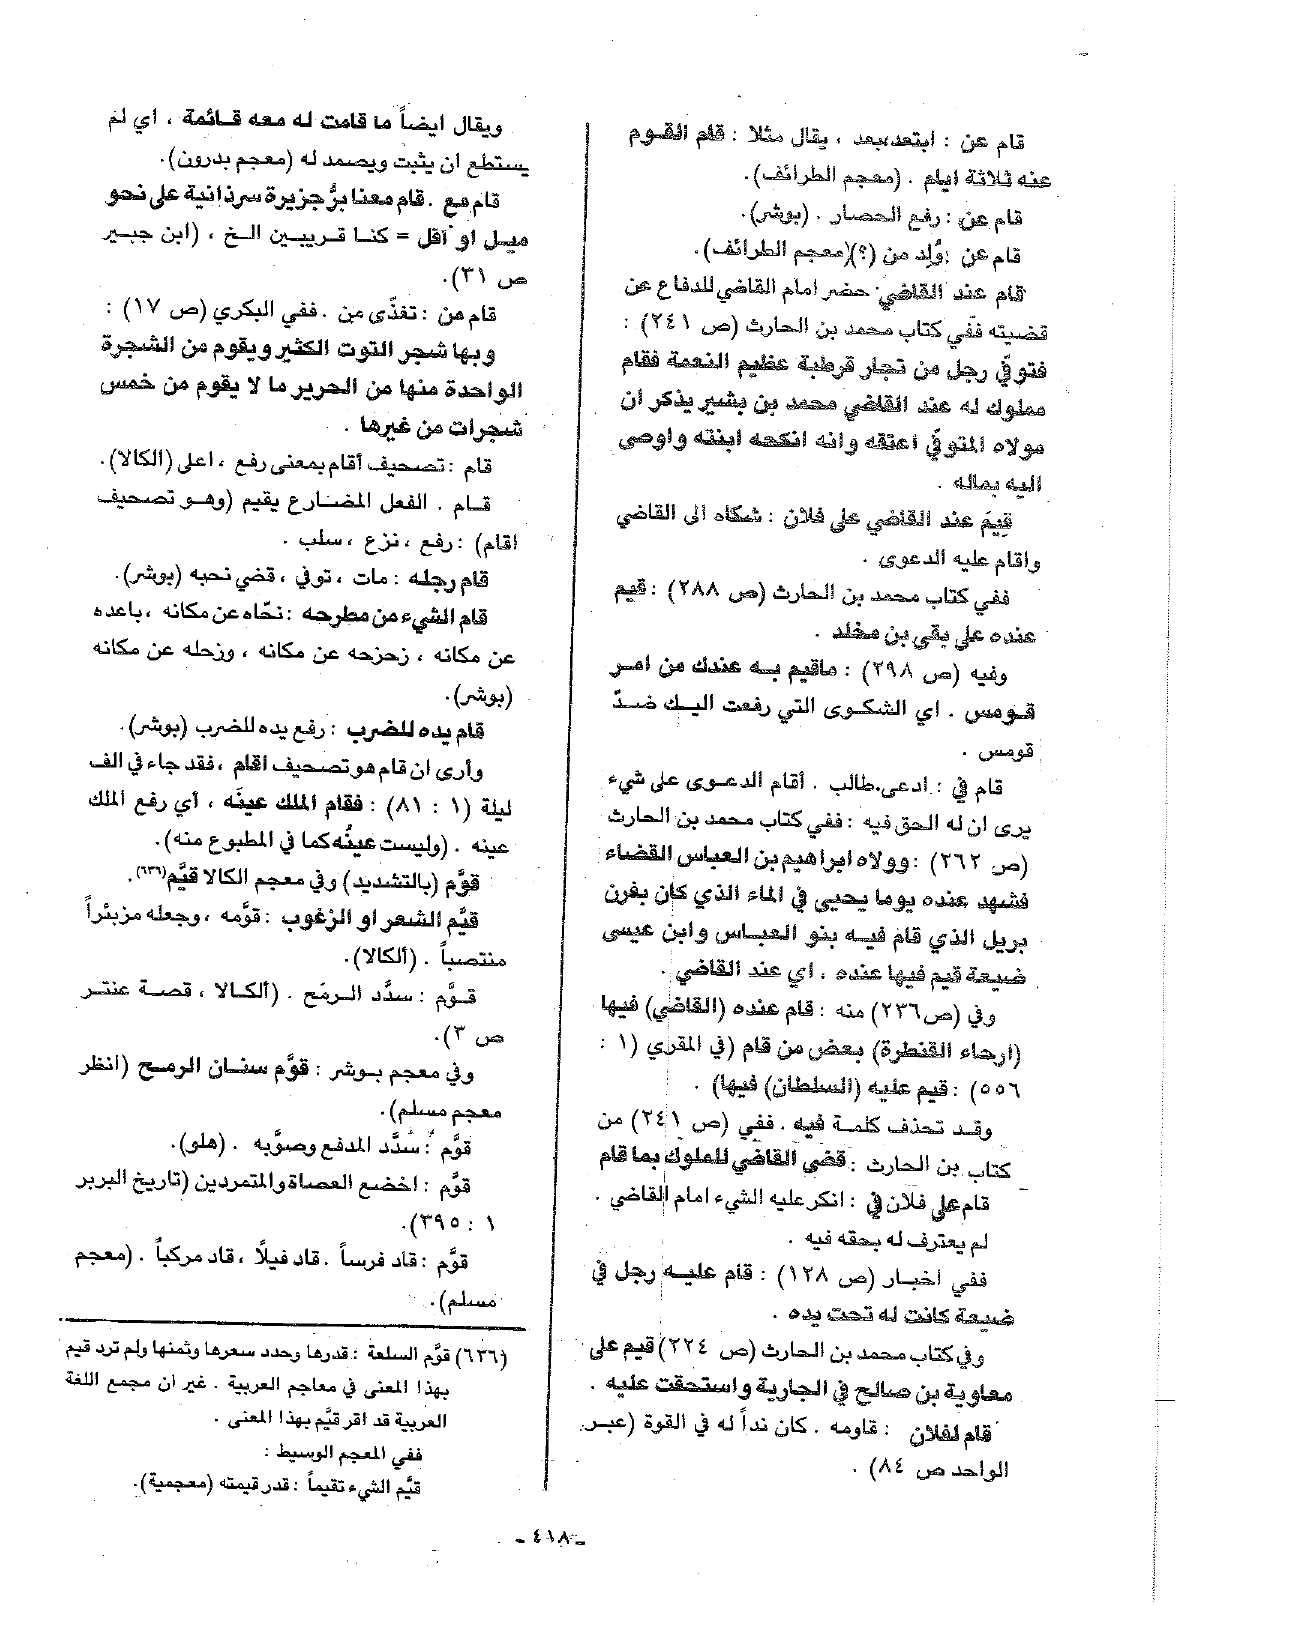 قام عن : ابتعد بعد ، يقال مثلا : قام القوم
عنه ثلاثة ايام . (معجم الطرائف).
قام عن : رفع الحصار . (بوشر).
قام عن : وُلِد من (؟)(معجم الطرائف).
قام عند القاضي : حضر امام القاضي للدفاع عن
قضيته ففي كتاب محمد بن الحارث (ص ٢٤١) :
فتوفّي رجل من تجار قرطبة عظيم النعمة فقام
مملوك له عند القاضي محمد بن بشير يذكر ان
مولاه المتوفّي اعتقه وانه انكحه ابنته واوصى
اليه بماله .
قِيمَ عند القاضي على فلان : شكاه الى القاضي
واقام عليه الدعوى .
ففي كتاب محمد بن الحارث (ص ٢٨٨) : قيم
عنده على بقي بن مخلد .
وفيه (ص ٢٩٨) : ماقيم به عندك من امر
قومس . اي الشكوى التي رفعت اليك ضدّ
قومس .
قام في : ادعى . طالب . أقام الدعوى على شيء
يرى ان له الحق فيه : ففي كتاب محمد بن الحارث
(ص ٢٦٢) : وولاه ابراهيم بن العباس القضاء
فشهد عنده يوما يحيى في الماء الذي كان بفرن
بريل الذي قام فيه بنو العباس وابن عيسى
ضيعة قيم فيها عنده . اي عند القاضي .
وفي (ص٢٣٦) منه : قام عنده (القاضي) فيها
(ارحاء القنطرة) بعض من قام (في المقري (١ :
٥٥٦) : قيم عليه (السلطان) فيها) .
وقد تحذف كلمة فيه . ففي (ص ٢٤١) من
كتاب بن الحارث : قضى القاضي للملوك بما قام
قام على فلان في : انكر عليه الشيء امام القاضي .
لم يعترف له بحقه فيه .
ففي اخبار (ص ١٢٨) : قام عليه رجل في
ضيعة كانت له تحت يده .
وفي كتاب محمد بن الحارث (ص ٢٢٤) قيم على
معاوية بن صالح في الجارية واستحقت عليه .
قام لفلان : قاومه . كان نداً له في القوة (عبد
الواحد ص ٨٤) .
ويقال ايضاً ما قامت له معه قائمة ، اي لم
يستطع ان يثبت ويصمد له (معجم بدرون).
قام مع . قام معنا برُّ جزيرة سرذانية على نحو
ميل او أقل = كنا قريبين الخ ، (ابن جبير
ص ٣١).
قام من : تغذّى من . ففي البكري (ص ١٧) :
وبها شجر التوت الكثير ويقوم من الشجرة
الواحدة منها من الحرير ما لا يقوم من خمس
شجرات من غيرها .
قام : تصحيف أقام بمعنى رفع ، اعلى (الكالا).
قام . الفعل المضارع يقيم (وهو تصحيف
اقام) : رفع ، نزع ، سلب .
قام رجله : مات ، توفي ، قضي نحبه (بوشر).
قام الشيء من مطرحه : نحّاه عن مكانه ، باعده
عن مكانه ، زحزحه عن مكانه ، وزحله عن مكانه
(بوشر).
قام يده للضرب : رفع يده للضرب (بوشر).
وأرى ان قام هو تصحيف اقام ، فقد جاء في الف
ليلة (١ : ٨١) : فقام الملك عينَه ، أي رفع الملك
عينه . (وليست عينُه كما في المطبوع منه).
قوَّم (بالتشديد) وفي معجم الكالا قيَّم(٦٣٦).
قيَّم الشعر او الزغوب : قوّمه ، وجعله مزبئراً
منتصباً . (ألكالا).
قوَّم : سدَّد الرمح . (ألكالا ، قصة عنتر
ص ٣).
وفي معجم بوشر : قوَّم سنان الرمح (انظر
معجم مسلم).
قوَّم : سُدَّد المدفع وصوَّبه . (هلو).
قوَّم : اخضع العصاة والمتمردين (تاريخ البربر
١ : ٣٩٥).
قوَّم : قاد فرساً . قاد فيلاً ، قاد مركباً . (معجم
مسلم).
(٦٣٦) قوَّم السلعة : قدرها وحدد سعرها وثمنها ولم ترد قيم
بهذا المعنى في معاجم العربية . غير ان مجمع اللغة
العربية قد اقر قيَّم بهذا المعنى .
ففي المعجم الوسيط :
قيَّم الشيء تقيماً : قدر قيمته (معجمية).
- ٤١٨ -